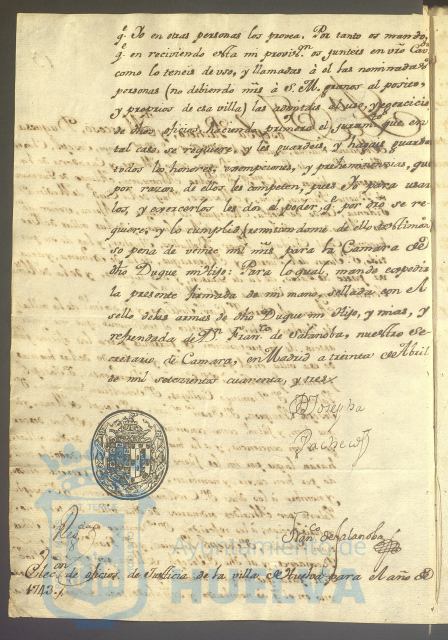 q.e Yo en otras personas los provea. Por tanto os mando,
q.e en reciviendo esta mi provis.on os junteis en vro Cav.
como lo teneis de uso, y llamadas à él las nominadas
personas (no debiendo mrs à S. M. granos al posito,
y propios de esa villa) las admitais al uso, y exercicio
de dhos oficios, haciendo primero el juram.to que en
tal caso, se requiere, y les guardeis, y hagais guardar
todos los honores, exempciones, y preheminencias, que
por razon de ellos les competen, pues Yo para usar
los, y exercerlos les doi el poder q.e por dro se re-
quiere, y lo cumplid (remitiendome de ello testimon.
so pena de veinte mil mrs para la Camara de
dho Duque mi Hijo: Para lo qual, mande expedir
la presente firmada de mi mano, sellada con el
sello de las armas de dho Duque mi Hijo, y mias, y
refrendada de D.n Fran.co de Salanoba, nuestro Se-
cretario de Camara, en Madrid a treinta de Abril
de mil setecientos cuarenta, y tres
Josepha
Pacheco
Fran.co de Salanoba
Elec.on de oficios de Justicia de la villa de Huelva para el año de
1743.
Ayuntamiento de
HUELVA